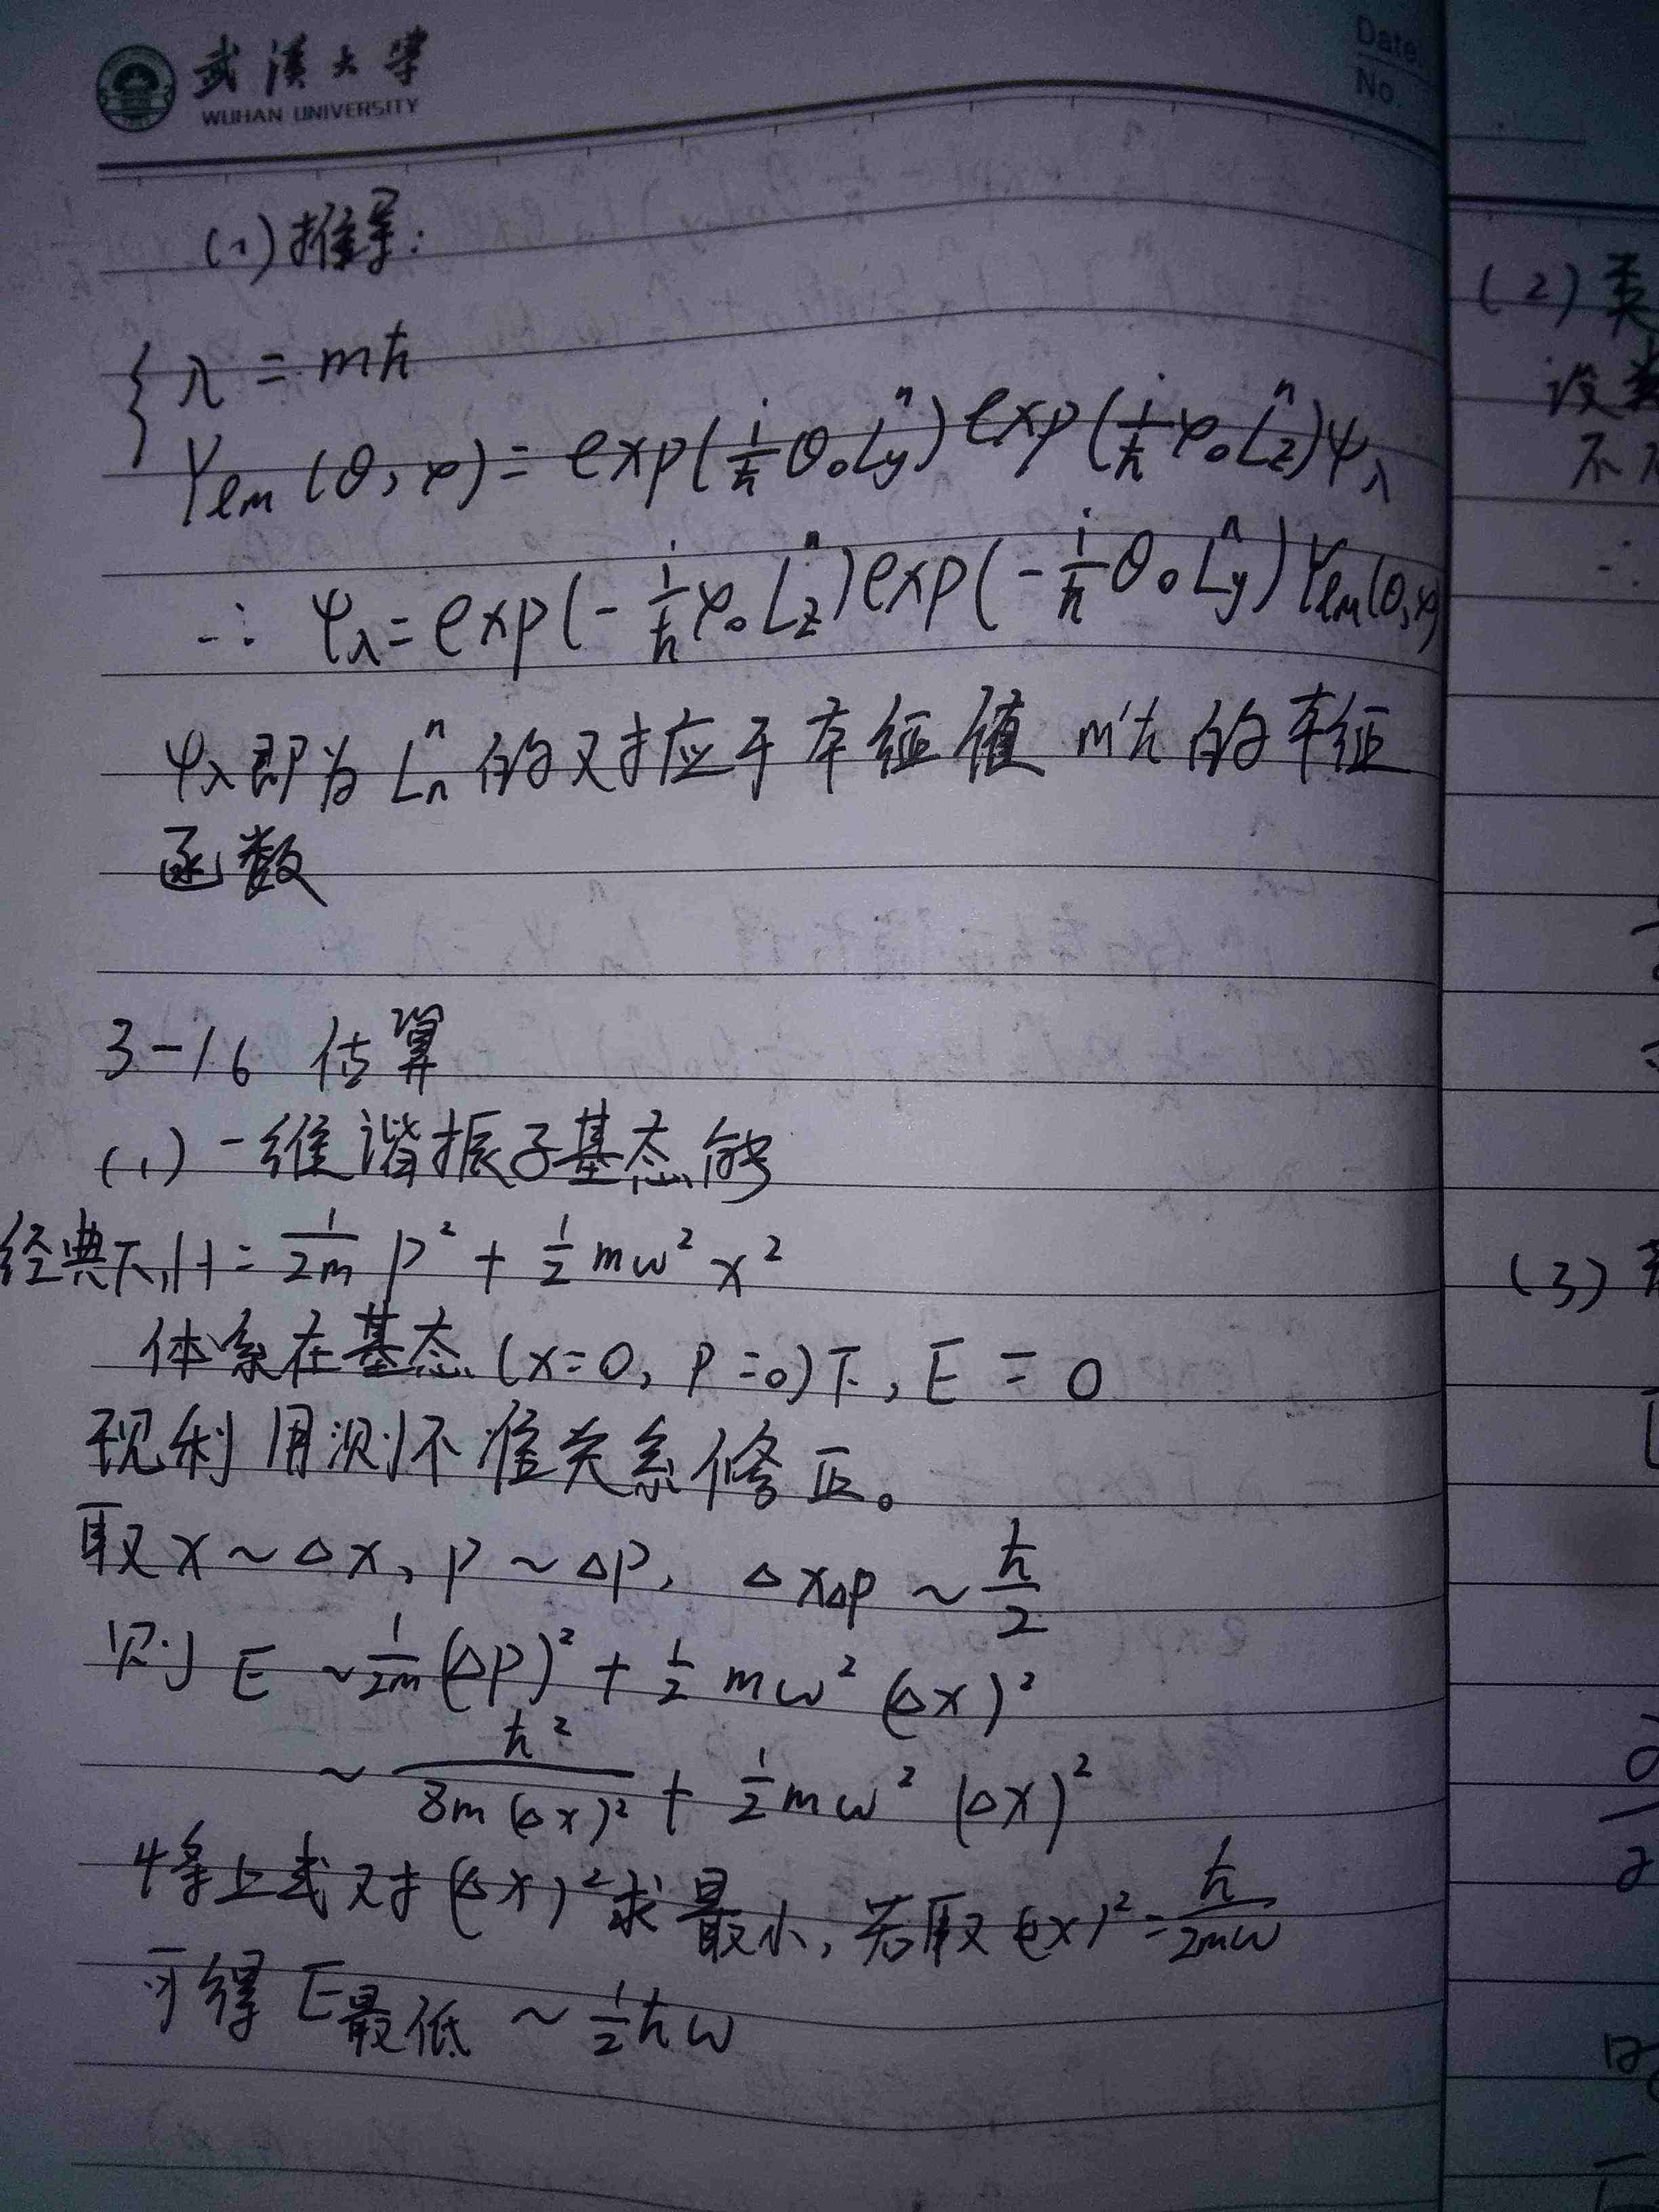 武漢大学
WUHAN UNIVERSITY
Date.
No.
(1)推导:
λ = mħ
Yₗₘ(θ, φ) = exp(i/ħ θ₀L̂y) exp(i/ħ φ₀L̂z)ψλ
∴ ψλ = exp(-i/ħ φ₀L̂z) exp(-i/ħ θ₀L̂y) Yₗₘ(θ,φ)
ψλ即为L̂n的对应于本征值 m'ħ的本征
函数
3-16 估算
(1) 一维谐振子基态能
经典下,H = 1/2m P² + 1/2 mω²x²
体系在基态(x=0, P=0)下, E = 0
现利用测不准关系修正。
取x~Δx, P~ΔP, ΔxΔP ~ ħ/2
则 E ~ 1/2m (ΔP)² + 1/2 mω² (Δx)²
~ ħ²/8m(Δx)² + 1/2 mω² (Δx)²
将上式对(Δx)²求最小,若取(Δx)² = ħ/2mω
可得 E最低 ~ 1/2 ħω
(2) 类
设
不
∴
(3)